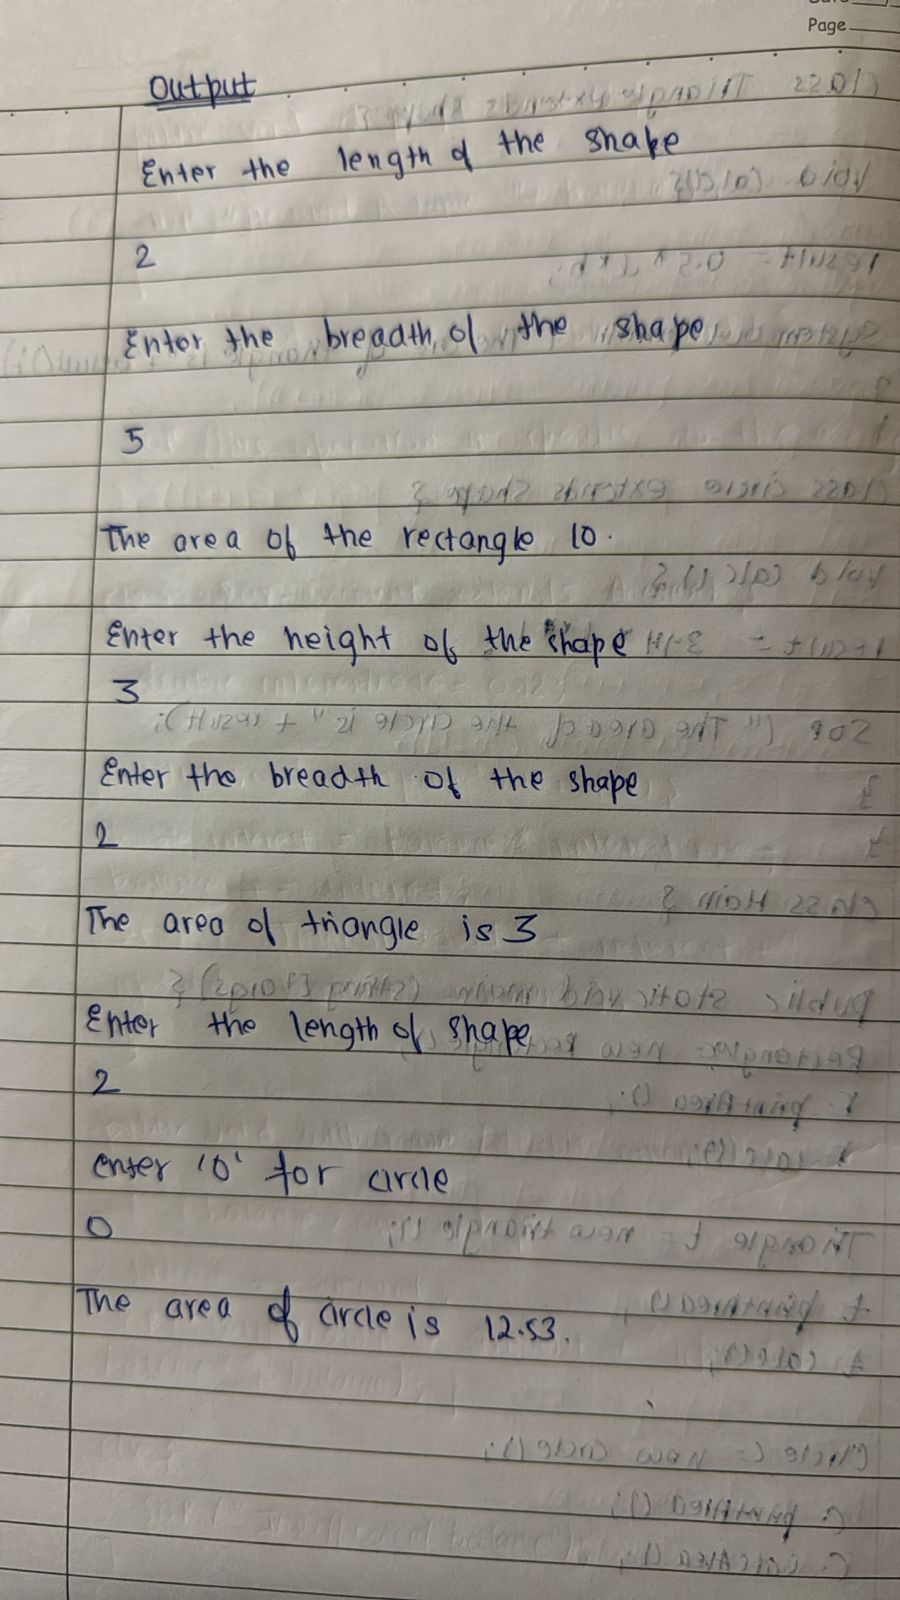 Page
Output
Enter the length of the shape
2
Enter the breadth of the shape
5
The area of the rectangle 10.
Enter the height of the shape
3
Enter the breadth of the shape
2
The area of triangle is 3
Enter the length of shape
2
enter '0' for circle
0
The area of circle is 12.53.